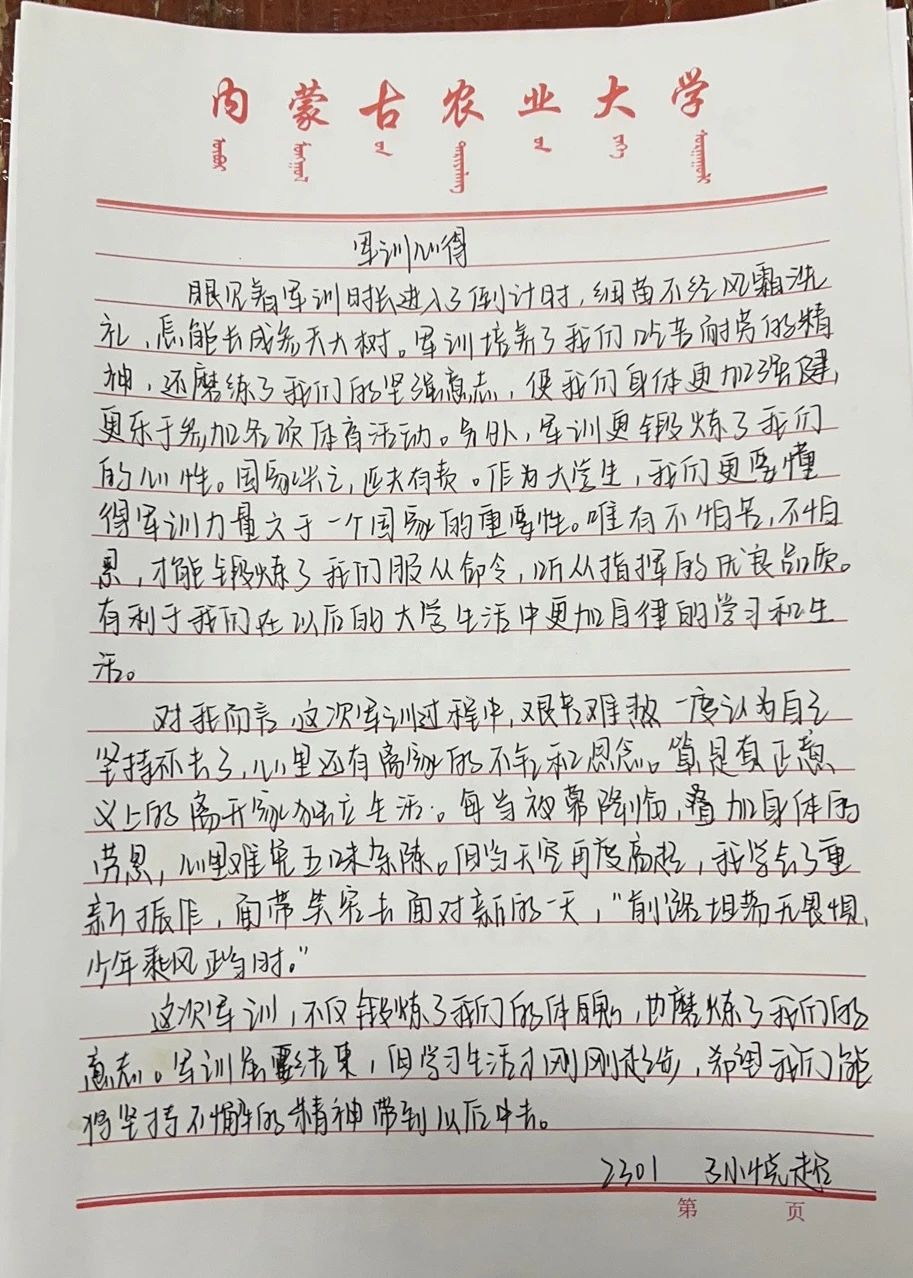 内蒙古农业大学
军训心得
眼见着军训时长进入了倒计时，细苗不经风霜洗
礼，怎能长成参天大树。军训培养了我们吃苦耐劳的精
神，还磨练了我们的坚强意志，使我们身体更加强健，
更乐于参加各项体育活动。另外，军训更锻炼了我们
的心性。国家兴亡，匹夫有责。作为大学生，我们更要懂
得军训力量之于一个国家的重要性。唯有不怕苦，不怕
累，才能锻炼了我们服从命令，听从指挥的优良品质。
有利于我们在以后的大学生活中更加自律的学习和生
活。
对我而言，这次军训过程中，艰苦难熬一度认为自己
坚持不去了，心里还有离家的不舍和思念。算是真正意
义上的离开家独立生活。每当夜幕降临，叠加身体的
劳累，心里难免五味杂陈。但当天空再度高起，我学会了重
新振作，面带笑容去面对新的一天，“前路坦荡无畏惧，
少年乘风正当时。”
这次军训，不仅锻炼了我们的体魄，也磨炼了我们的
意志。军训虽要结束，但学习生活才刚刚起步，希望我们能
将坚持不懈的精神带到以后中去。
2301 孙悦超
第 页